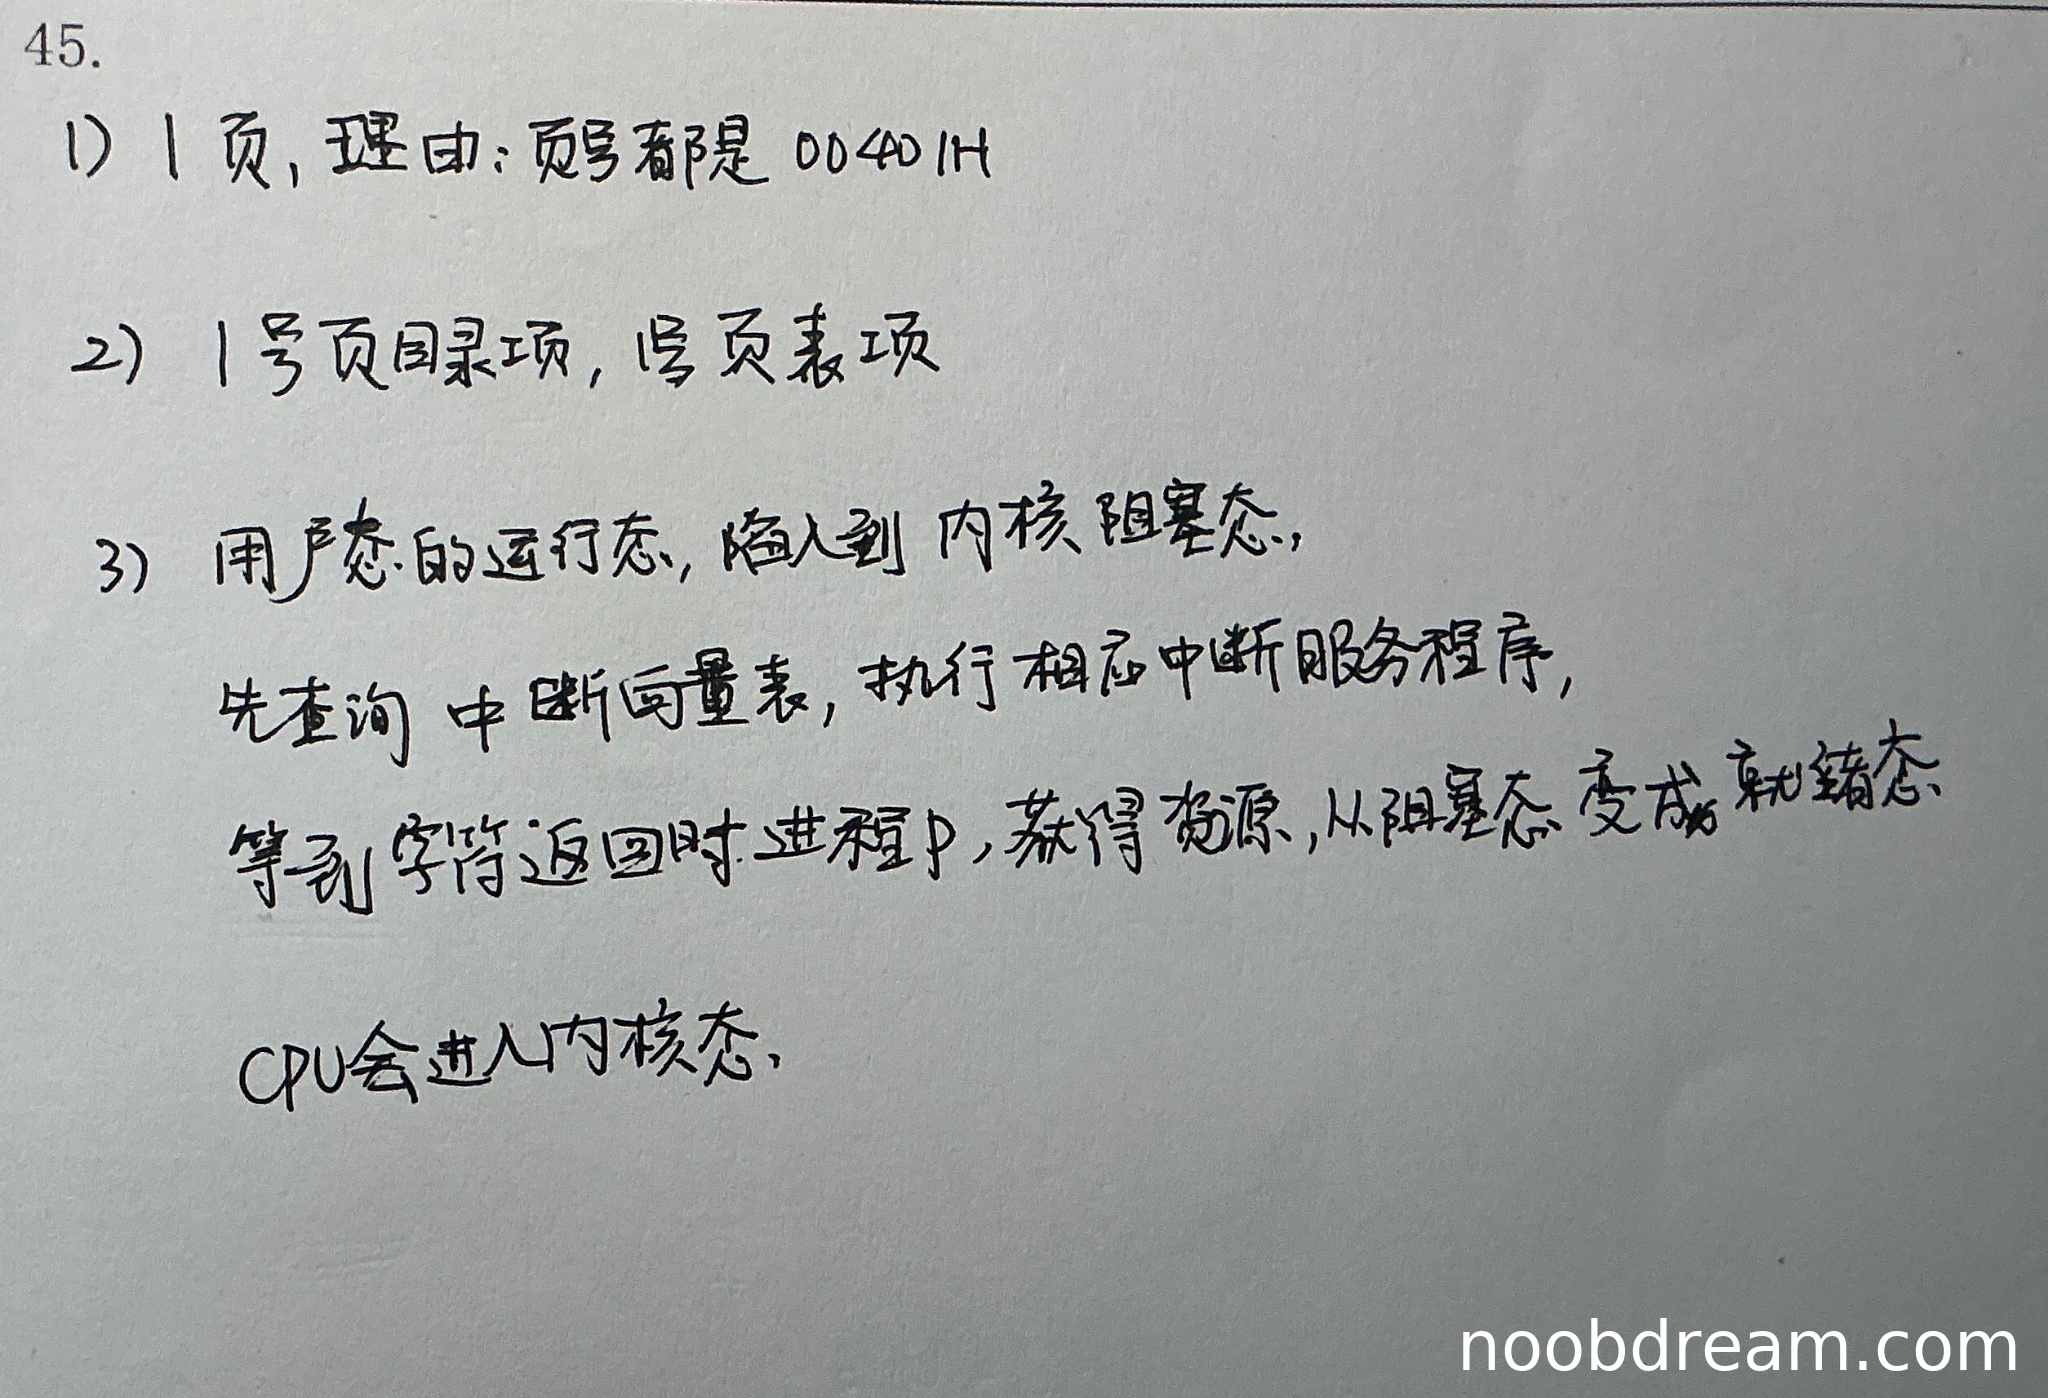 45.
1) 1页,理由:页号都是 00401H
2) 1号页目录项,1号页表项
3) 用户态的运行态,陷入到 内核阻塞态,
先查询 中断向量表,执行相应中断服务程序,
等到字符返回时进程P,获得资源,从阻塞态变成就绪态
CPU会进入内核态.
noobdream.com